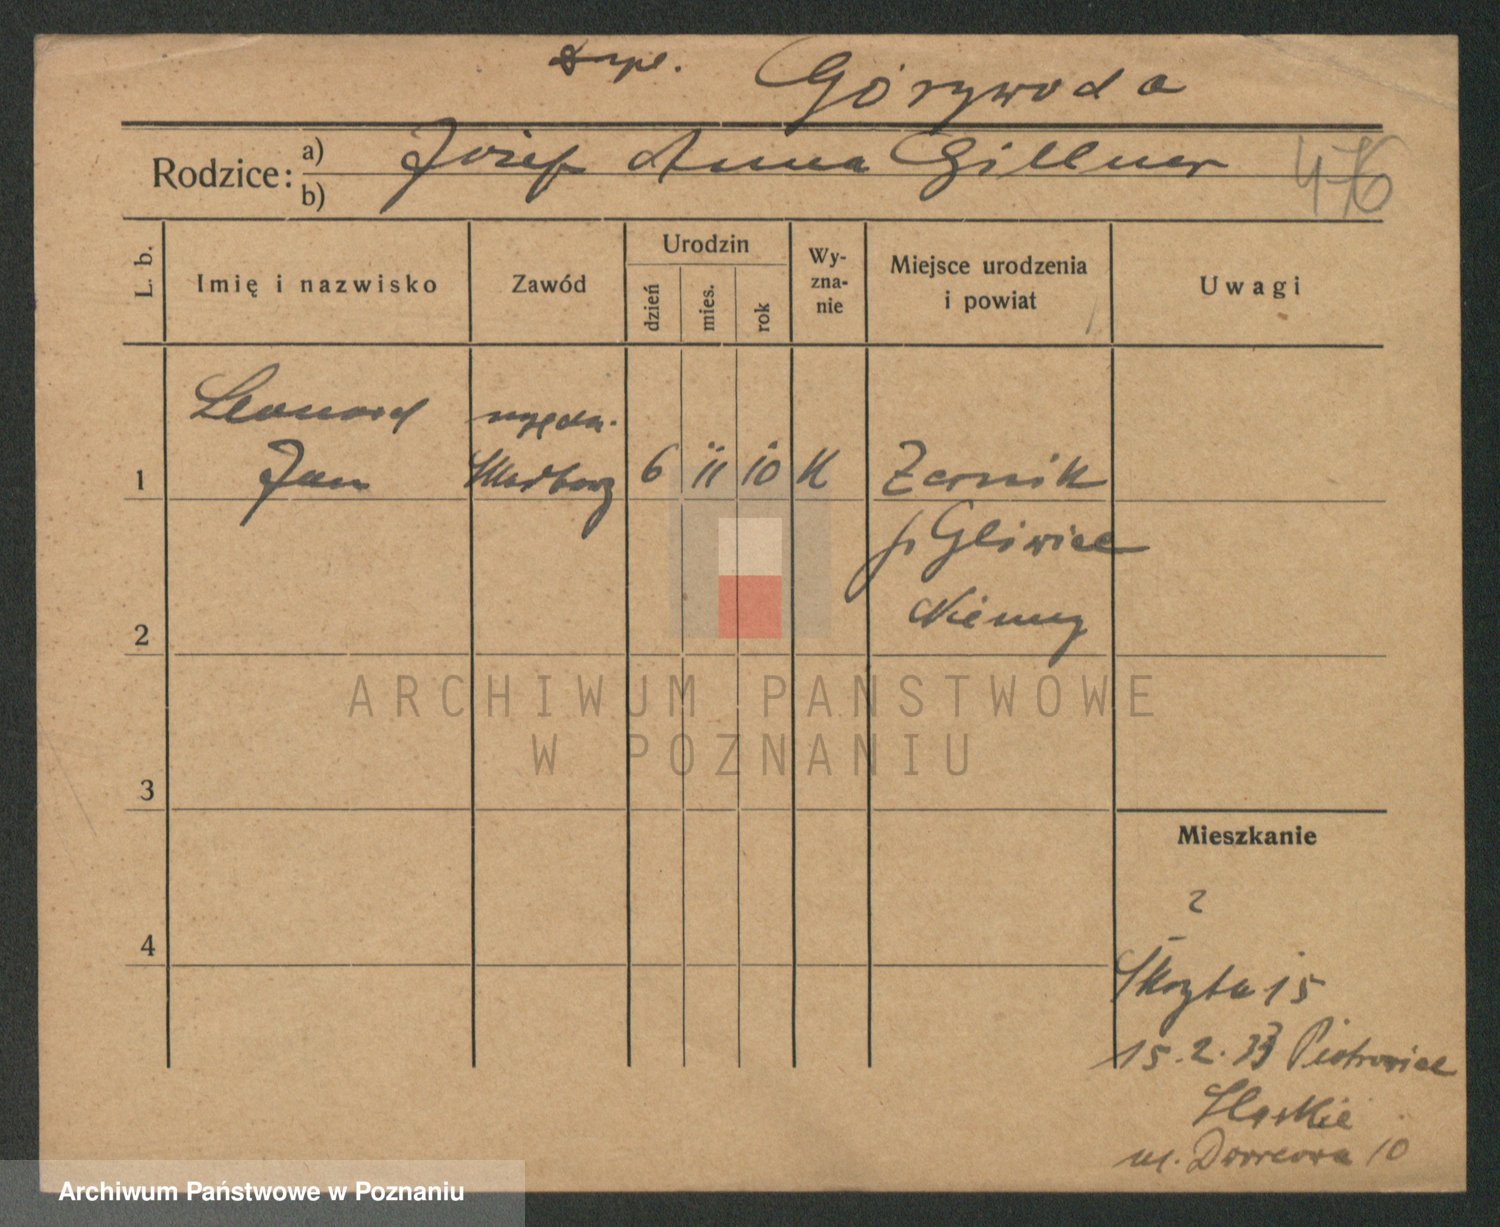 Górywoda
Rodzice:
a) Józef Anna Gillner
b)
476
L. b.
Imię i nazwisko
Zawód
Urodzin
dzień
mies.
rok
Wy-
zna-
nie
Miejsce urodzenia
i powiat
Uwagi
Leonard
Jan
urzędn.
Skarbowy
1
6 11 10 K
Zernik
p. Gliwice
Niemcy
2
3
4
ARCHIWUM PAŃSTWOWE
W POZNANIU
Mieszkanie
2
Skryta 15
15.2.33 Piotrowice
Śląskie
ul. Dworcowa 10
Archiwum Państwowe w Poznaniu